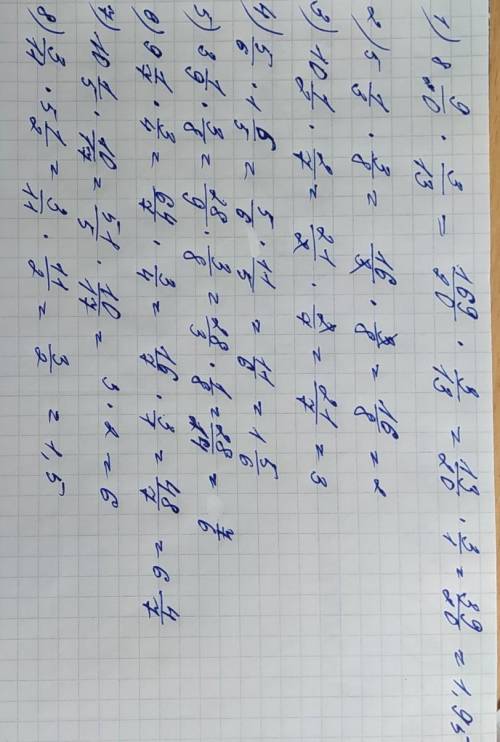 1) 8 9/20 · 3/13 = 169/20 · 3/13 = 13/20 · 3/1 = 39/20 = 1,95
2) 5 1/3 · 3/8 = 16/3 · 3/8 = 16/8 = 2
3) 10 1/2 · 2/7 = 21/2 · 2/7 = 21/7 = 3
4) 5/6 · 1 6/5 = 5/6 · 11/5 = 11/6 = 1 5/6
5) 3 1/9 · 3/8 = 28/9 · 3/8 = 28/3 · 1/8 = 28/24 = 7/6
6) 9 1/7 · 3/4 = 64/7 · 3/4 = 16/7 · 3/1 = 48/7 = 6 4/7
7) 10 1/5 · 10/17 = 51/5 · 10/17 = 3 · 2 = 6
8) 3/11 · 5 1/2 = 3/11 · 11/2 = 3/2 = 1,5